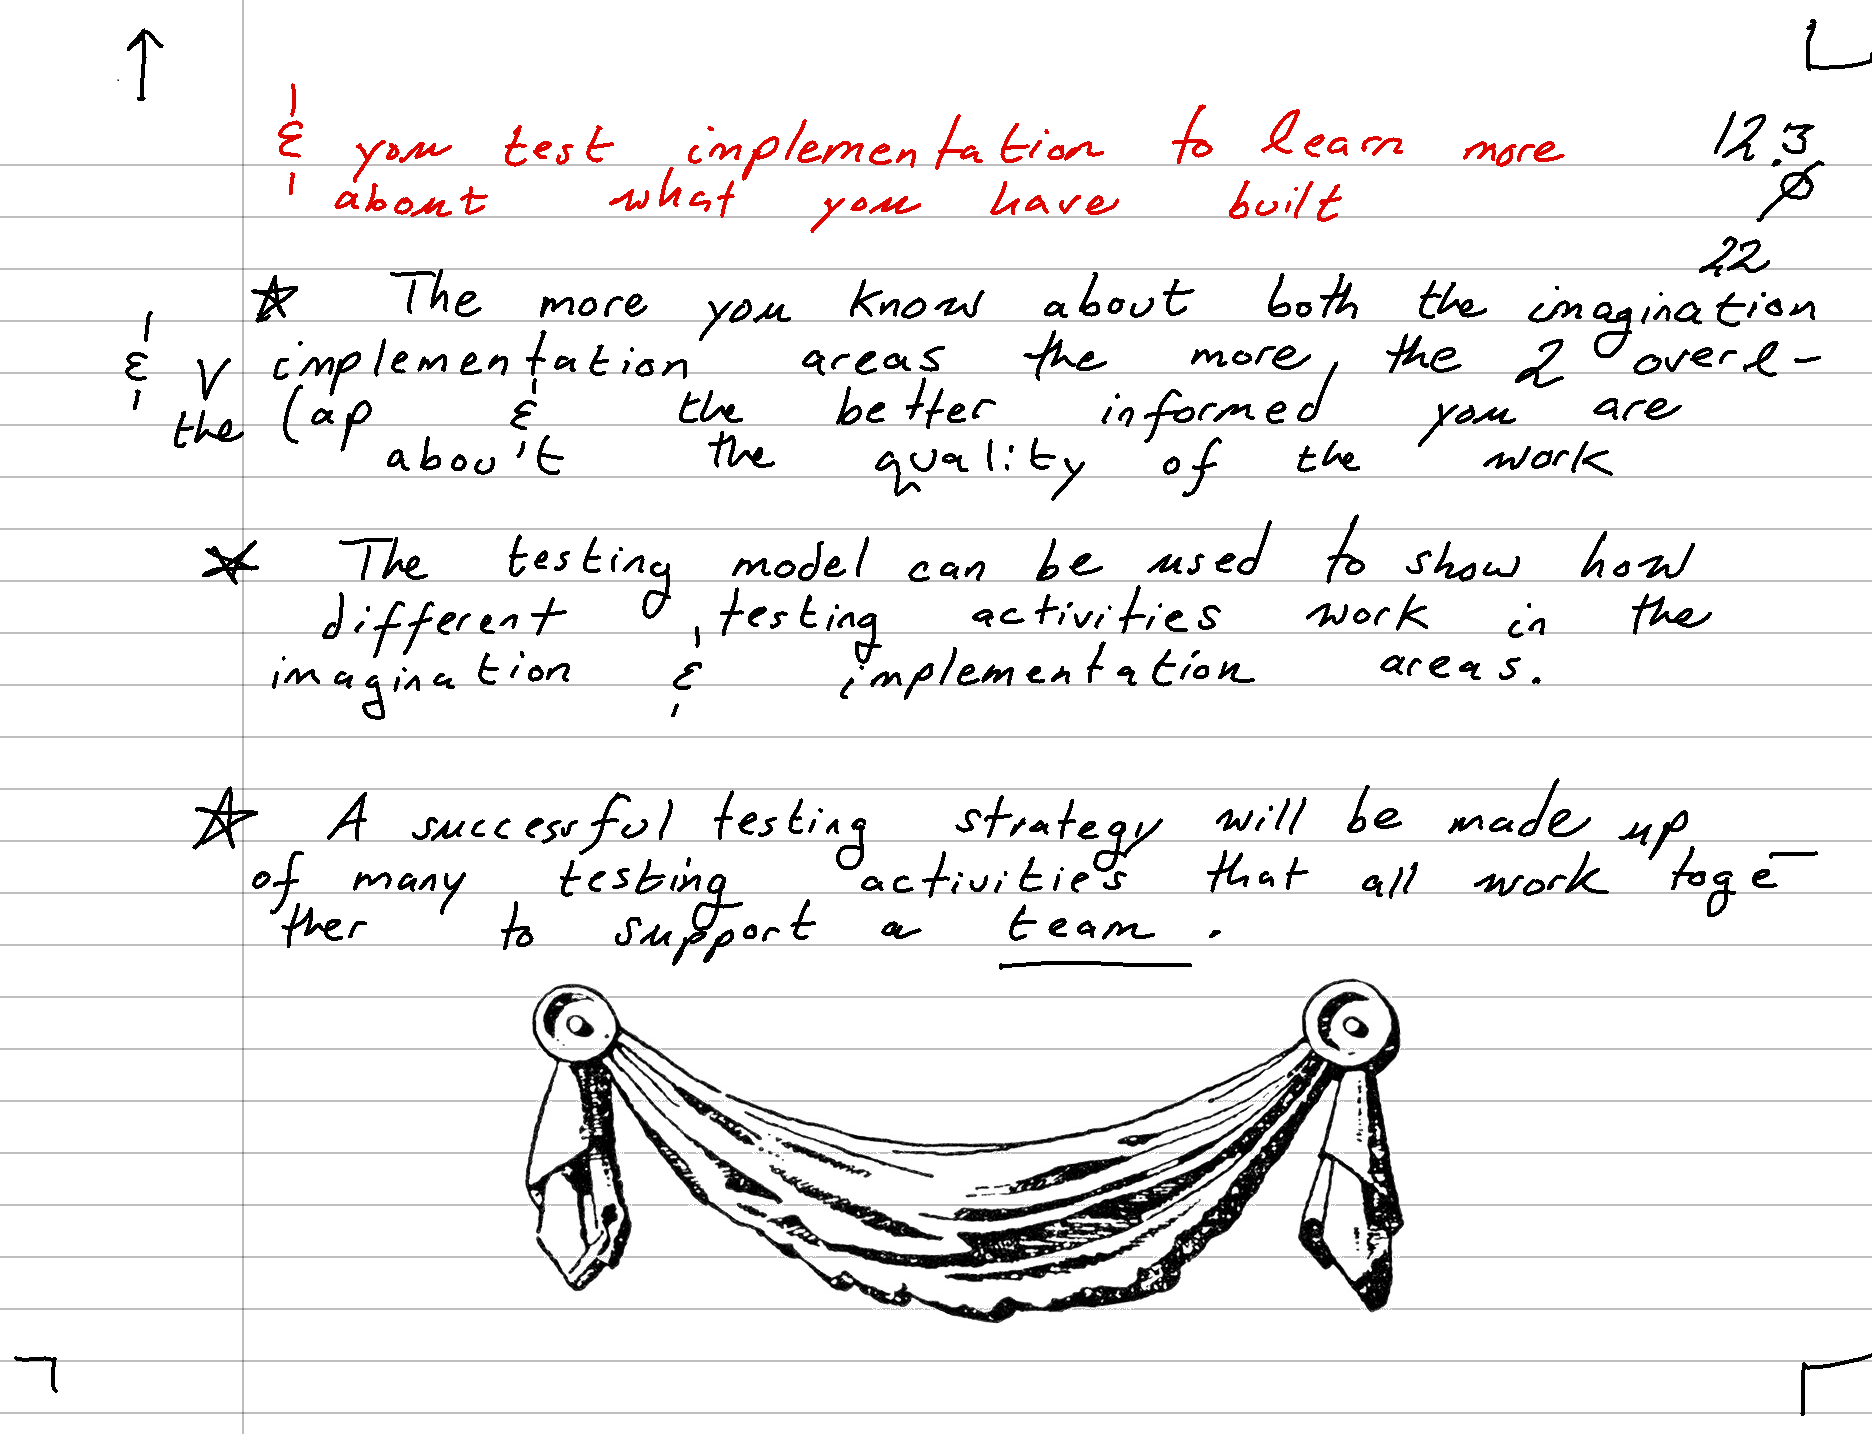 & you test implementation to learn more
about what you have built
12.3
Ø
22
☆ The more you know about both the imagination
& the V implementation areas the more, the 2 overl-
(ap & the better informed you are
about the quality of the work
☆ The testing model can be used to show how
different testing activities work in the
imagination & implementation areas.
☆ A successful testing strategy will be made up
of many testing activities that all work toge-
ther to support a team.